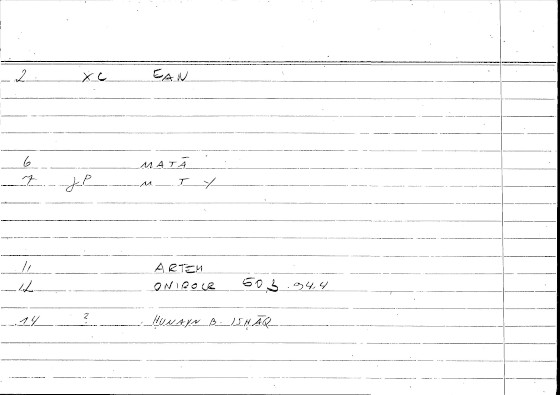 2 XC EAN
6 MATĀ
7 JP M T Y
11 ARTEM
12 ONIROCR 94.4
14 ? ḤUNAYN B. ISḤĀQ